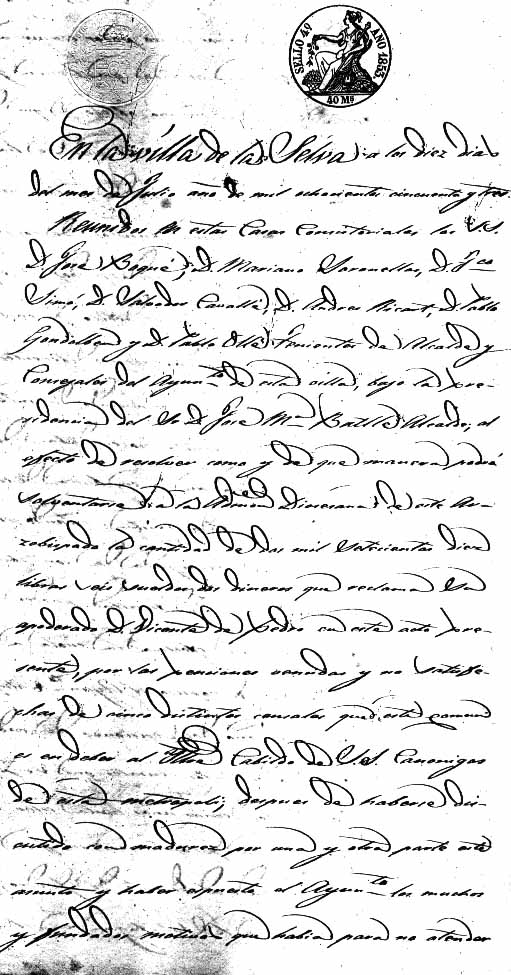 SELLO 4º AÑO 1853.
40 Ms
En la villa de la Selva a los diez dias
del mes de Julio año de mil ochocientos cincuenta y tres.
Reunidos en estas Casas Consistoriales los SS.
D. José Boqué, D. Mariano Varonellas, D. Fco
Simó, D. Salvador Cavallé, D. Andres Ricart, D. Pablo
y D. Pablo Ollé Tenientes de Alcalde y
Consejales del Ayunto de esta villa, bajo la pre-
sidencia del Sr. D. José Ma Batlle Alcalde, al
efecto de resolver como y de que manera podrá
a la Diocesana de este Ar-
zobispado la cantidad de dos mil setecientas diez
libras seis sueldos dos dineros que reclama su
apoderado D. Vicente de Pedro en este acto pre-
sente, por las penciones vencidas y no satisfe-
chas de cinco distintos censales que este comun
es en deber al Iltre Cabildo de SS. Canonigos
de esta metropoli; despues de haberse dis-
cutido con madurez por una y otra parte este
asunto y haber espuesto el Ayunto los muchos
y fundados motivos que habia para no atender